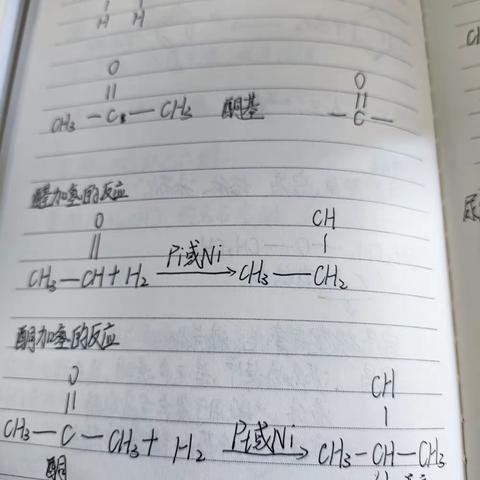 H H
O O
CH₃—C—CH₃ 酮基 —C—
醛加氢的反应
O CH
CH₃—CH+H₂ Pi或Ni CH₃—CH₂
酮加氢的反应
O CH
CH₃—C—CH₃+H₂ Pt或Ni CH₃—CH—CH₃
酮